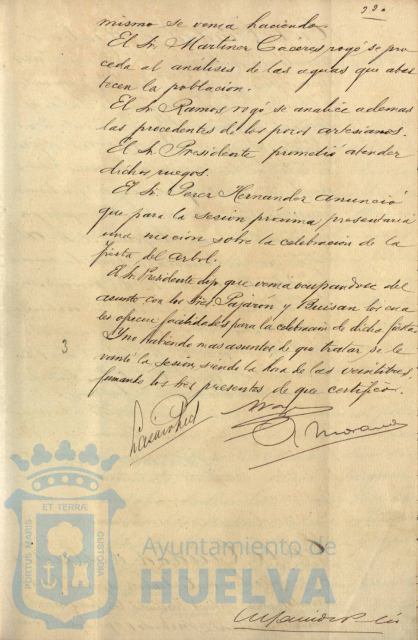 220
mismo se venia haciendo.
El Sr. Martinez Caceres rogó se pro
ceda al analisis de las aguas que abas
tecen la población.
El Sr. Ramos rogó se analice ademas
las procedentes de los pozos artesianos.
El Sr. Presidente prometió atender
dichos ruegos.
El Sr. Perez Hernandez anunció
que para la sesión próxima presentaria
una moción sobre la celebración de la
fiesta del arbol.
El Sr. Presidente dijo que venia ocupandose del
asunto con los Sres. Pajarón y Buisan los cua
les ofrecen facilidades para la celebración de dicha fiesta
Y no habiendo mas asuntos de que tratar se le
3
vantó la sesión, siendo la hora de las veintitres
firmando los Sres presentes de que certifico.
Morano
ET TERRÆ
PORTUS MARIS
CUSTODIA
Ayuntamiento de
HUELVA